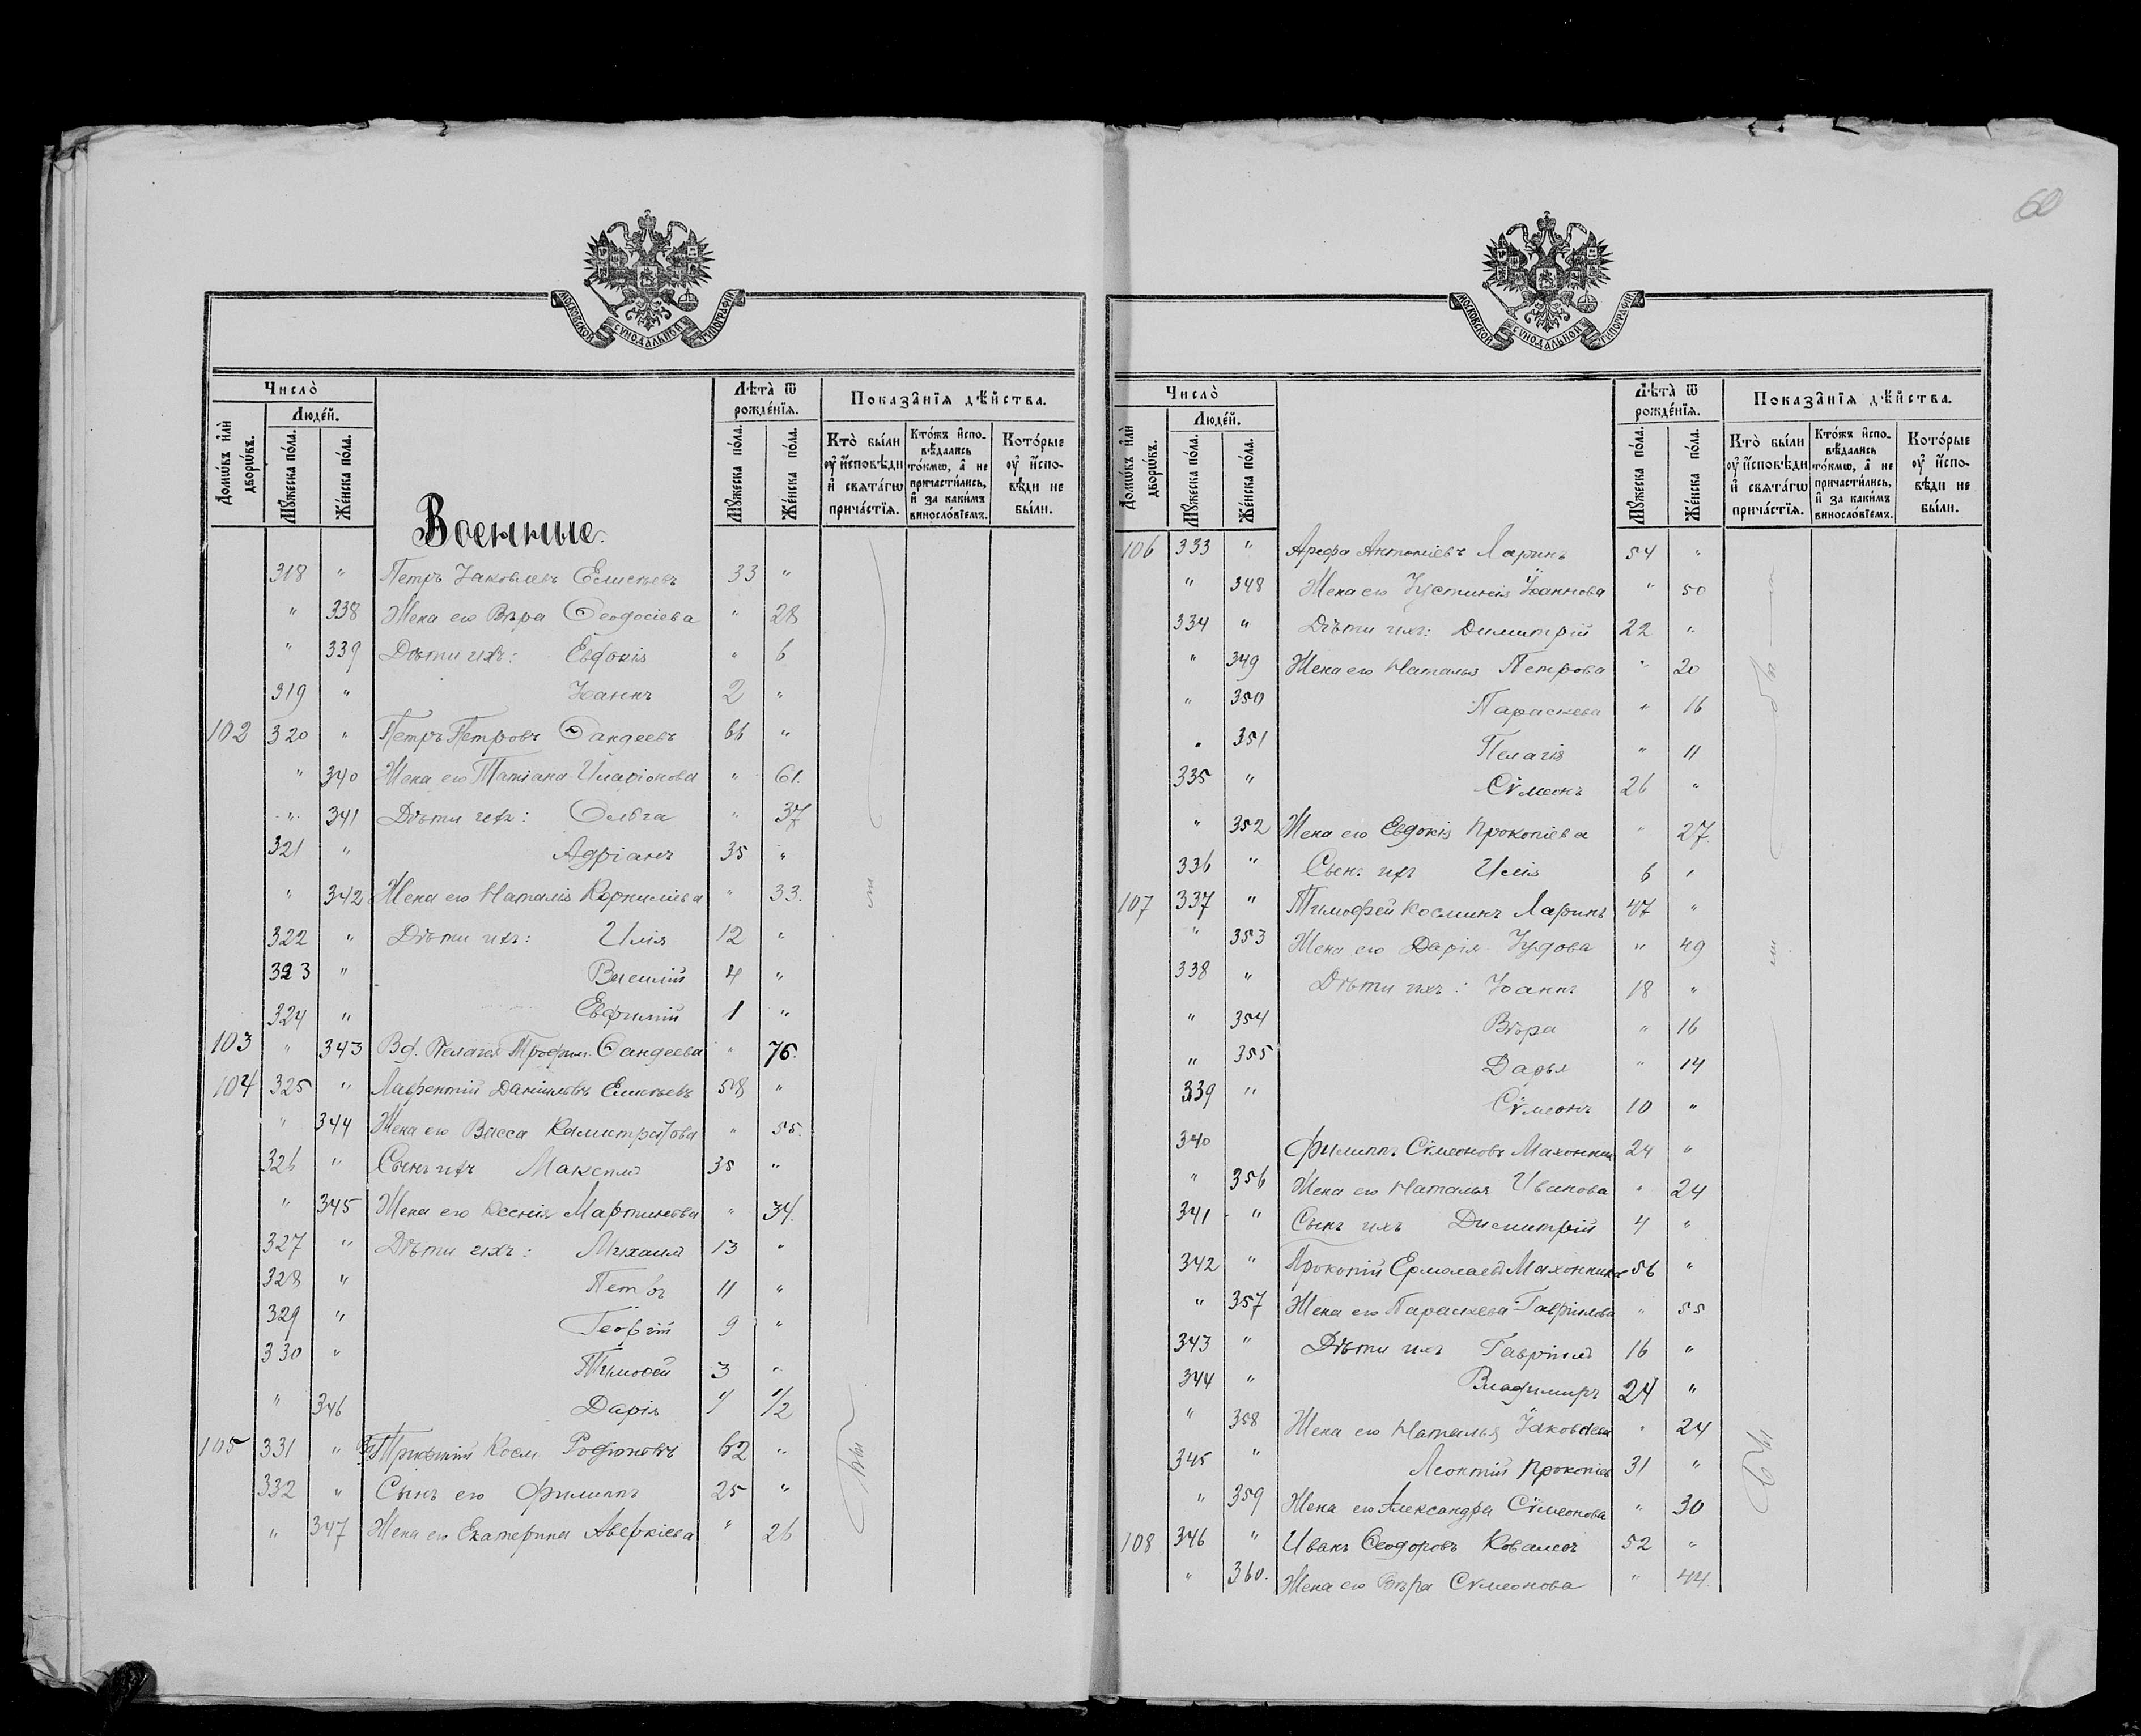 60
МОСКОВСКОЙ СѴНОДАЛЬНОЙ ТИПОГРАФІИ
Число̀
Людéй.
Лѣта̀ ѿ рождéнїѧ.
Показа̂нїѧ дѣ́йства.
Домѡ́въ и҆лѝ дворѡ́въ.
Мꙋ́жеска по́ла.
Жéнска по́ла.
Мꙋ́жеска по́ла.
Жéнска по́ла.
Кто̀ бы́ли ᲂу҆ и҆́сповѣди и҆ свѧта́гѡ прича́стїѧ.
Кто́жъ и҆спо-вѣ́дались то́кмѡ, а҆ не причасти́лись, и҆ за каки́мъ винослóвїемъ.
Кото́рые ᲂу҆ и҆́спо-вѣди не бы́ли.
Военные.
318 " Петръ Іаковлевъ Елисѣевъ 33 "
" 338 Жена его Вѣра Ѳеодосіева " 28
" 339 Дѣти ихъ: Евдокія " 6
319 " Іоаннъ 2 "
102 320 " Петръ Петровъ Сандеевъ 66 "
" 340 Жена его Татіана Иларіонова " 61.
" 341 Дѣти ихъ: Ольга " 37
321 " Адріанъ 35 "
" 342 Жена его Наталія Корниліева " 33.
322 " Дѣти ихъ: Илія 12 "
323 " Василій 4 "
324 " Евфимій 1 "
103 " 343 Вд. Пелагея Трофим. Сандеева " 76.
104 325 " Лаврентій Даніиловъ Елисѣевъ 58 "
" 344 Жена его Васса Калистратова " 55.
326 " Сынъ ихъ Максимъ 35 "
" 345 Жена его Ксенія Мартинова " 34.
327 " Дѣти ихъ: Михаилъ 13 "
328 " Петръ 11 "
329 " Георгій 9 "
330 " Тимоѳей 3 "
" 346 Дарія " 1/2
105 331 " Косм. Родіоновъ 62 "
332 " Сынъ его Филиппъ 25 "
" 347 Жена его Екатерина Аверкіева " 26
Были
Число̀
Людéй.
Лѣта̀ ѿ рождéнїѧ.
Показа̂нїѧ дѣ́йства.
Домѡ́въ и҆лѝ дворѡ́въ.
Мꙋ́жеска по́ла.
Жéнска по́ла.
Мꙋ́жеска по́ла.
Жéнска по́ла.
Кто̀ бы́ли ᲂу҆ и҆́сповѣди и҆ свѧта́гѡ прича́стїѧ.
Кто́жъ и҆спо-вѣ́дались то́кмѡ, а҆ не причасти́лись, и҆ за каки́мъ винослóвїемъ.
Кото́рые ᲂу҆ и҆́спо-вѣди не бы́ли.
106 333 " Арефа Антоніевъ Ларинъ 54 "
" 348 Жена его Іустинія Іоаннова " 50
334 " Дѣти ихъ: Димитрій 22 "
" 349 Жена его Наталья Петрова " 20
" 350 Параскева " 16
" 351 Пелагія " 11
335 " Сѵмеонъ 26 "
" 352 Жена его Евдокія Прокопіева " 27.
336 " Сынъ ихъ Илія 6 "
107 337 " Тимофей Косминъ Ларинъ 47 "
" 353 Жена его Дарія Іудова " 49
338 " Дѣти ихъ: Іоаннъ 18 "
" 354 Вѣра " 16
" 355 Дарья " 14
339 " Сѵмеонъ 10 "
340 Филиппъ Сѵмеоновъ Махонинъ 24 "
" 356 Жена его Наталья Иванова " 24
341 " Сынъ ихъ Димитрій 4 "
342 " Прокопій Ермолаевъ Махонинъ 56 "
" 357 Жена его Параскева Гавріилова " 55
343 " Дѣти ихъ Гавріилъ 16 "
344 " Владимиръ 24 "
" 358 Жена его Наталья Іаковлева " 24
345 " Леонтій Прокопіев 31 "
" 359 Жена его Александра Сѵмеонова " 30
108 346 " Иванъ Ѳеодоровъ Ковалевъ 52 "
" 360. Жена его Вѣра Сѵмеонова " 44.